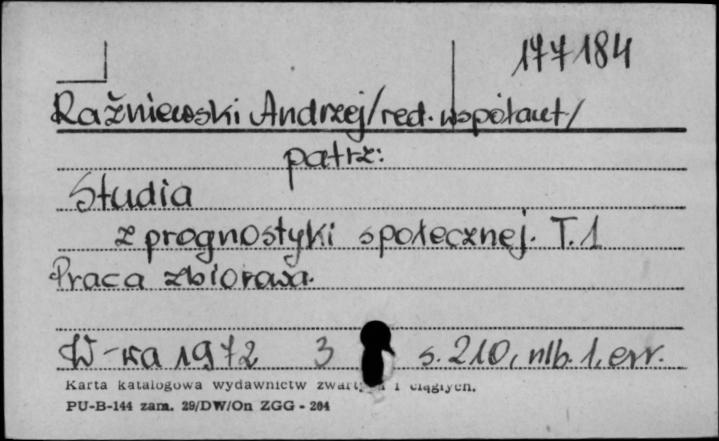 177184
Rażniewski Andrzej/red. współaut/
patrz:
Studia
z prognostyki społecznej. T.1
Praca zbiorowa.
W-wa 1972 3 s. 210, nlb. 1, err.
Karta katalogowa wydawnictw i ciągłych.
PU-B-144 zam. 29/DW/On ZGG - 264